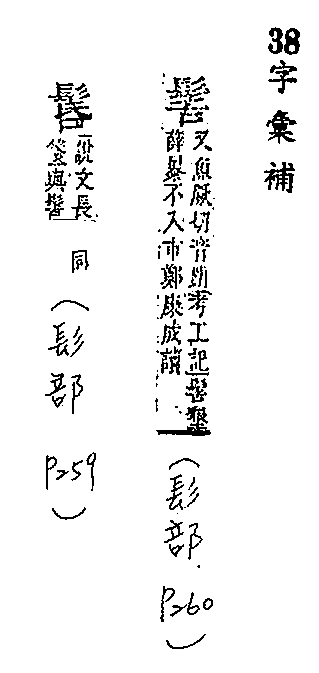 38 字彙補
髺 又魚厥切音刖考工記髺墾
薜暴不入市鄭康成讀
(髟部.
P260)
髺 說文長
箋與髻
同
(髟部
P259)